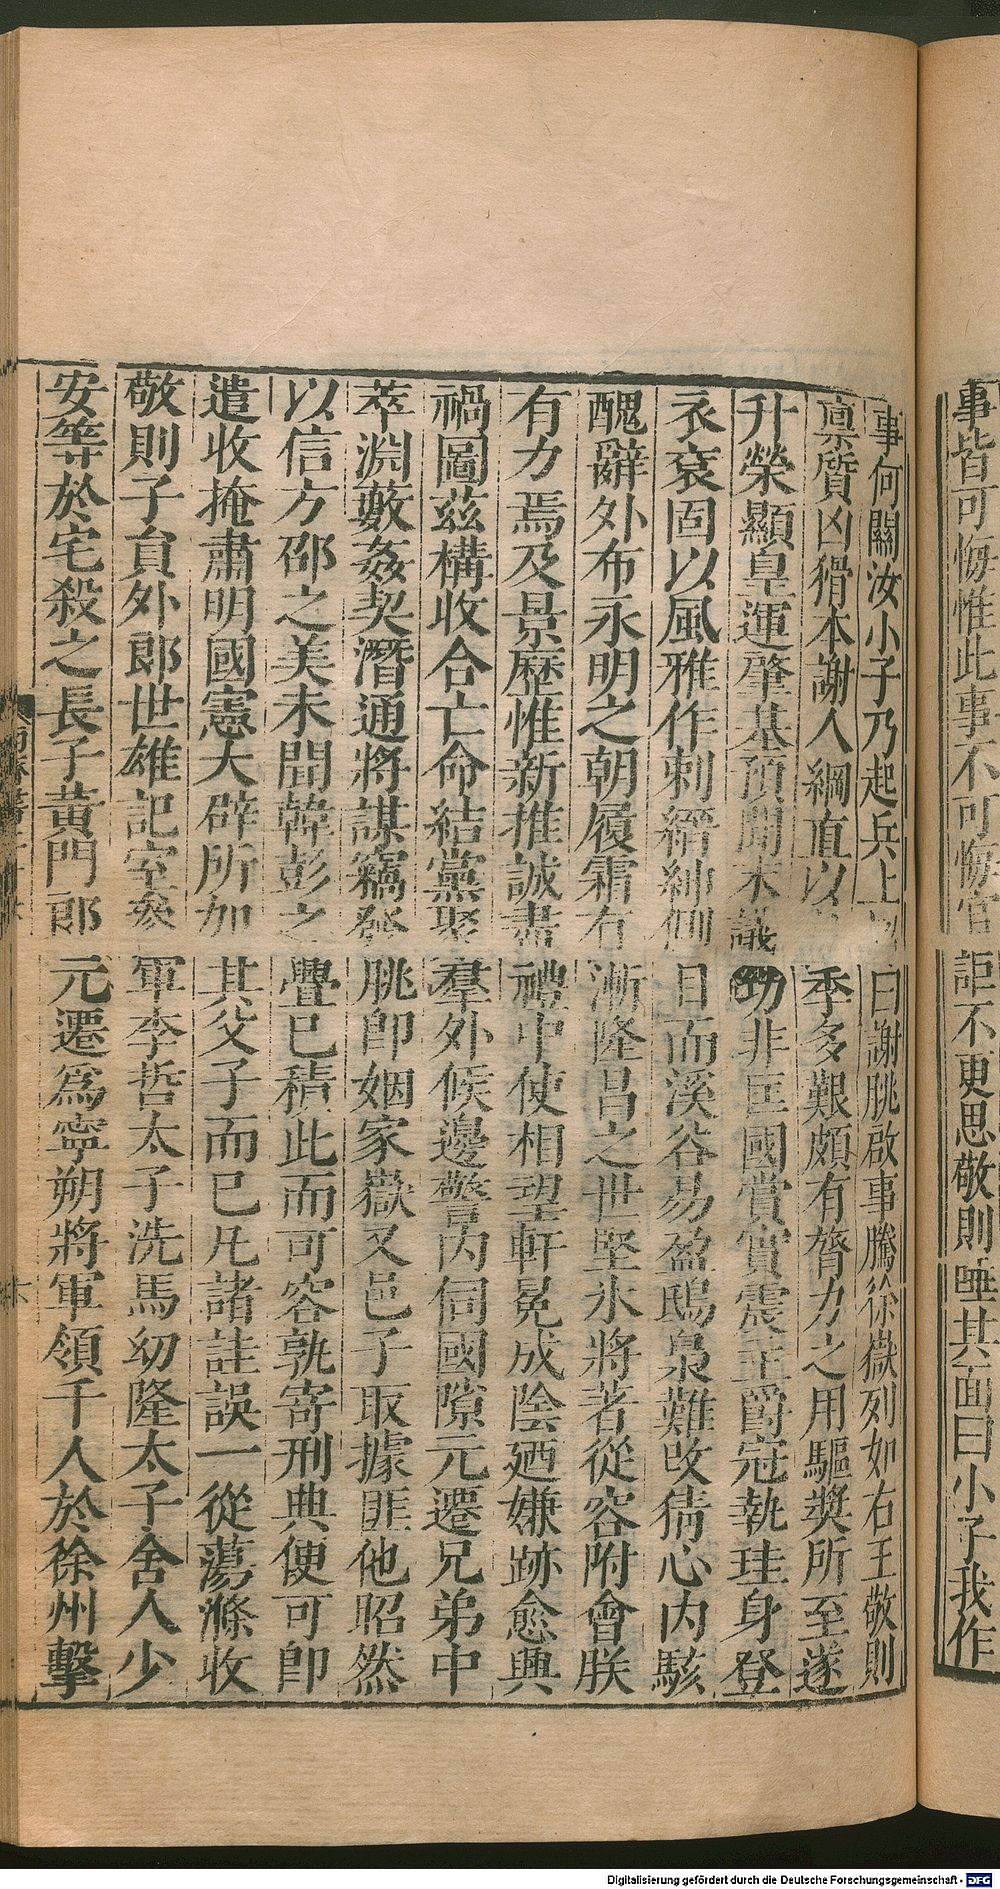 事皆可悔惟此事不可悔官詎不更思敬則唾其面曰小子我作
事何關汝小子乃起兵上曰謝朓啟事騰徐嶽列如右王敬則
稟質凶猾本謝人綱直以季多艱頗有膂力之用驅獎所至遂
升榮顯皇運肇基預聞末議功非匡國賞實震主爵冠執珪身登
衣衮固以風雅作刺縉紳側目而溪谷易盈鴟梟難改猜心內駭
醜辭外布永明之朝履霜有漸隆昌之世堅氷將著從容附會朕
有力焉及景歷惟新推誠盡禮中使相望軒冕成陰廼嫌跡愈興
禍圖茲構收合亡命結黨聚羣外候邊警內伺國隙元遷兄弟中
萃淵藪姦契潛通將謀竊發朓即姻家嶽又邑子取據匪他昭然
以信方邵之美未聞韓彭之釁已積此而可容孰寄刑典便可即
遣收掩肅明國憲大辟所加其父子而已凡諸詿誤一從蕩滌收
敬則子員外郎世雄記室參軍季哲太子洗馬幼隆太子舍人少
安等於宅殺之長子黃門郎元遷爲寧朔將軍領千人於徐州擊
Digitalisierung gefördert durch die Deutsche Forschungsgemeinschaft - DFG